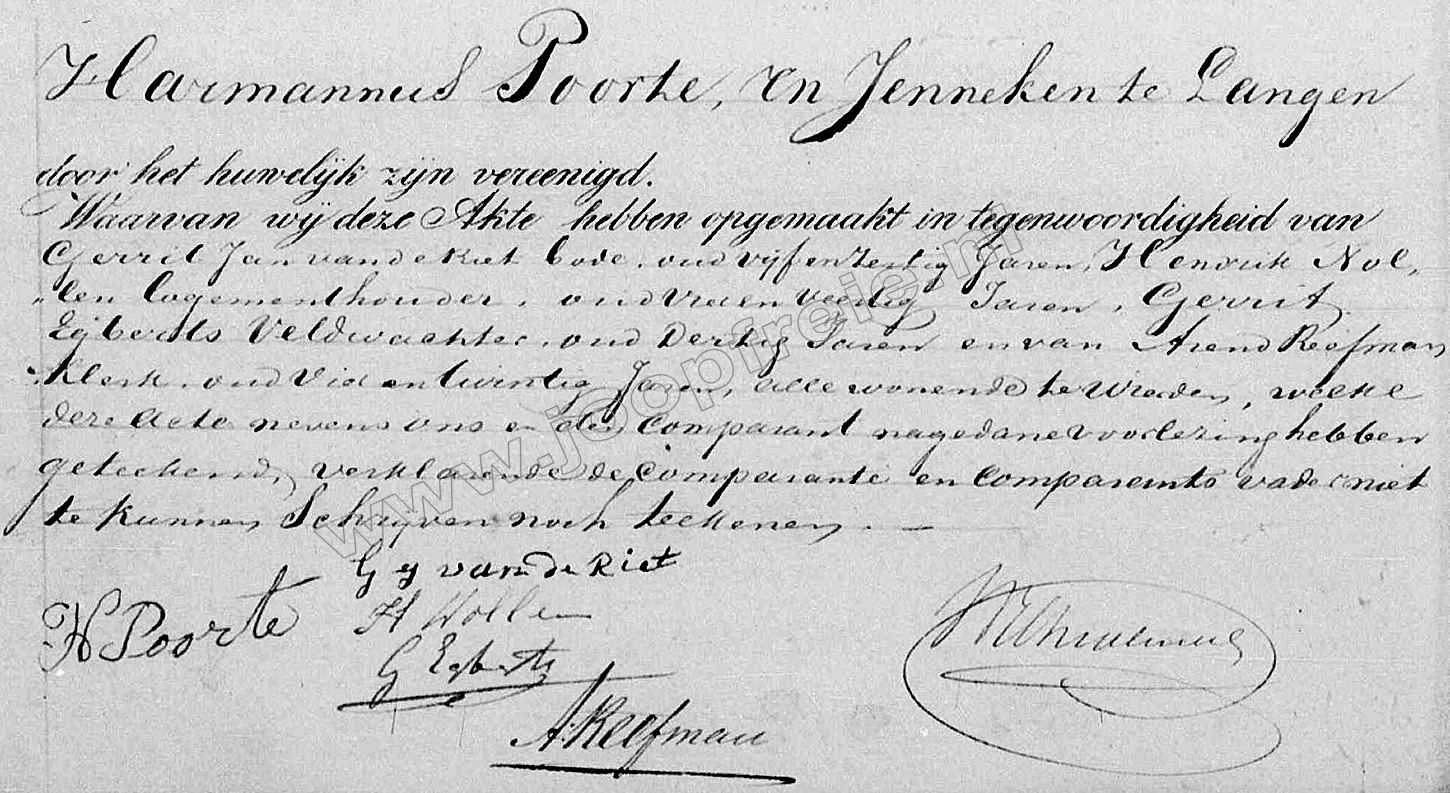 Harmannus Poorte, en Jenneken te Langen
door het huwelijk zijn vereenigd.
Waarvan wij deze Akte hebben opgemaakt in tegenwoordigheid van
Gerrit Jan van de Riet bode, oud vijf en Zestig Jaren, Hendrik Nol,
„len logementhouder, oud Vier en Veertig Jaren, Gerrit
Egberts Veldwachter, oud Dertig Jaren en van Arend Reefman
Klerk, oud Vier en twintig Jaren, alle wonende te Wierden, welke
deze acte nevens ons en den Comparant na gedane voorlezing hebben
geteekend, verklarende de Comparante en Comparants vader niet
te Kunnen Schrijven noch teekenen. —
G J van de Riet
H Poorte
H Nollen
G Egberts
A. Reefman
www.joopfreie.nl